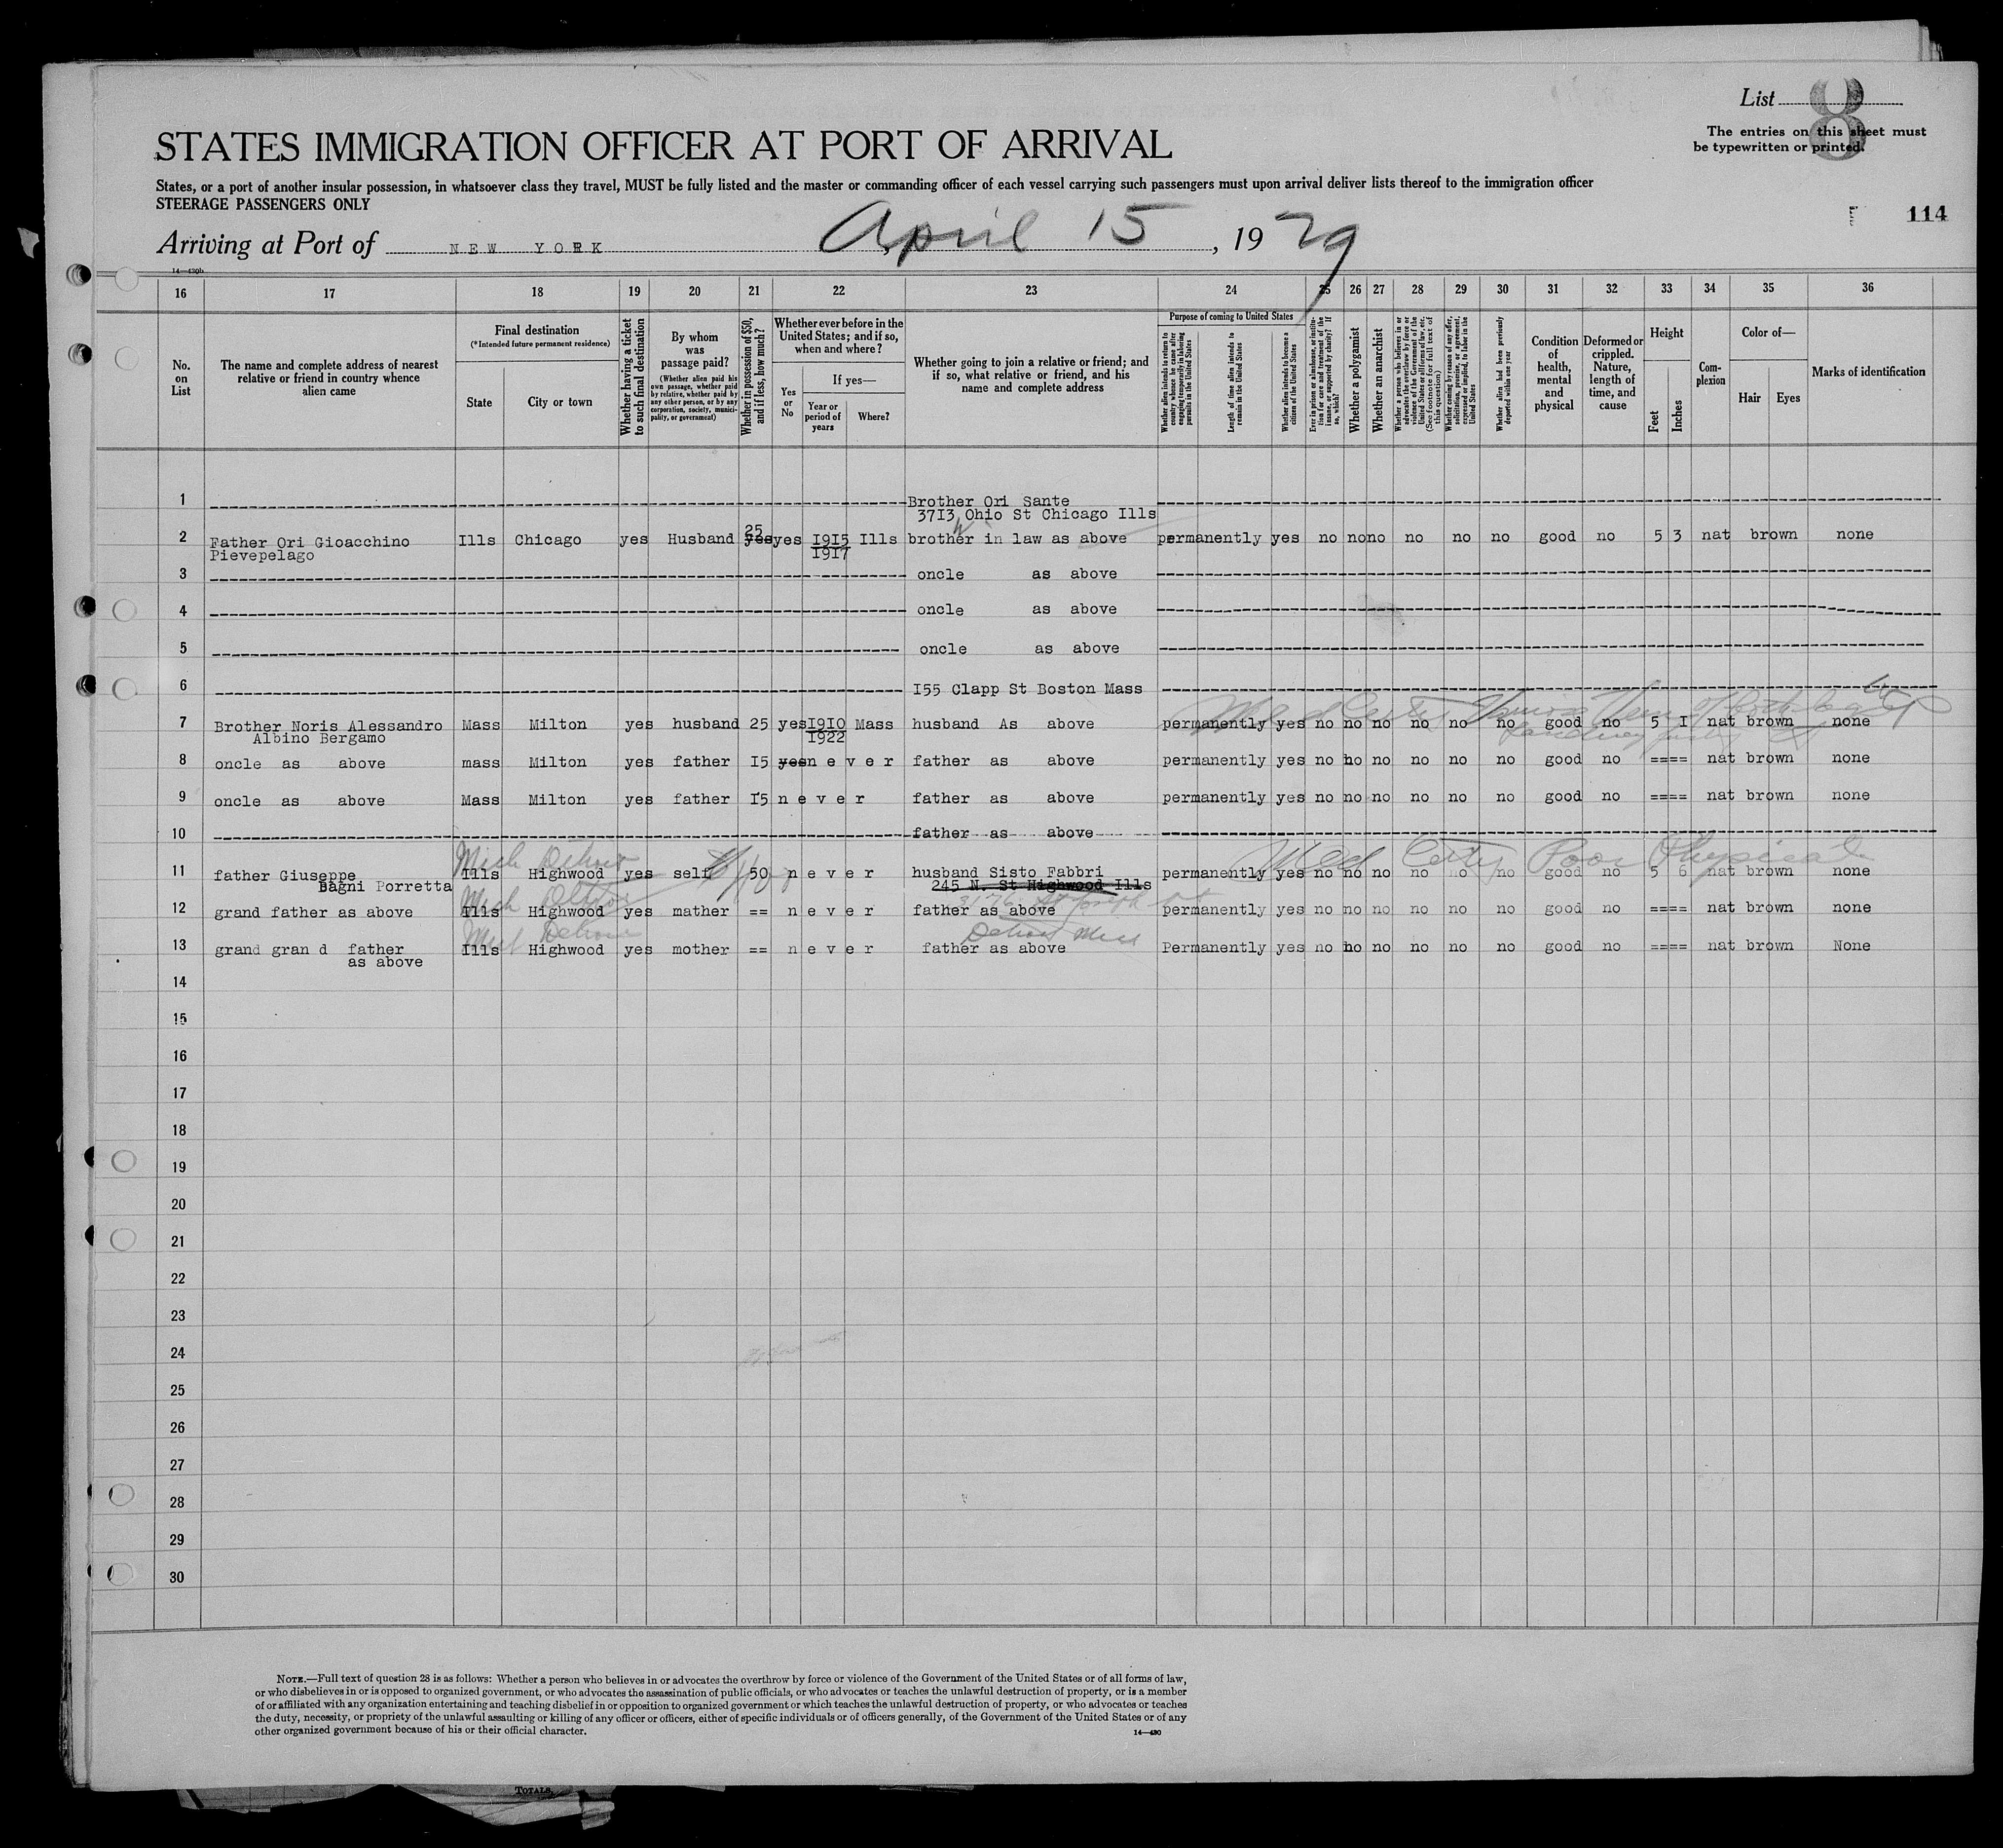 List 8
The entries on this sheet must
be typewritten or printed.
STATES IMMIGRATION OFFICER AT PORT OF ARRIVAL
States, or a port of another insular possession, in whatsoever class they travel, MUST be fully listed and the master or commanding officer of each vessel carrying such passengers must upon arrival deliver lists thereof to the immigration officer
STEERAGE PASSENGERS ONLY
114
Arriving at Port of NEW YORK, April 15, 1929
14—430b
16 17 18 19 20 21 22 23 24 25 26 27 28 29 30 31 32 33 34 35 36
No. on List
The name and complete address of nearest relative or friend in country whence alien came
Final destination
(*Intended future permanent residence)
State
City or town
Whether having a ticket to such final destination
By whom was passage paid?
(Whether alien paid his own passage, whether paid by relative, whether paid by any other person, or by any corporation, society, municipality, or government)
Whether in possession of $50, and if less, how much?
Whether ever before in the United States; and if so, when and where?
Yes or No
If yes—
Year or period of years
Where?
Whether going to join a relative or friend; and if so, what relative or friend, and his name and complete address
Purpose of coming to United States
Whether alien intends to return to country whence he came after engaging temporarily in laboring pursuits in the United States
Length of time alien intends to remain in the United States
Whether alien intends to become a citizen of the United States
Ever in prison or almshouse, or institution for care and treatment of the insane, or supported by charity? If so, which?
Whether a polygamist
Whether an anarchist
Whether a person who believes in or advocates the overthrow by force or violence of the Government of the United States or all forms of law, etc. (See footnote for full text of this question)
Whether coming by reason of any offer, solicitation, promise, or agreement, expressed or implied, to labor in the United States
Whether alien had been previously deported within one year
Condition of health, mental and physical
Deformed or crippled. Nature, length of time, and cause
Height
Feet
Inches
Complexion
Color of—
Hair
Eyes
Marks of identification
1 Brother Ori Sante
3713 W Ohio St Chicago Ills
2 Father Ori Gioacchino Ills Chicago yes Husband 25 yes yes 1915 Ills brother in law as above permanently yes no no no no no no good no 5 3 nat brown none
Pievepelago 1917
3 oncle as above
4 oncle as above
5 oncle as above
6 I55 Clapp St Boston Mass
Med Cert
7 Brother Noris Alessandro Mass Milton yes husband 25 yes 1910 Mass husband As above permanently yes no no no no no no good no 5 I nat brown none
Albino Bergamo 1922
8 oncle as above mass Milton yes father I5 yes never father as above permanently yes no no no no no no good no ==== nat brown none
9 oncle as above Mass Milton yes father I5 never father as above permanently yes no no no no no no good no ==== nat brown none
10 father as above
Mich Detroit Med Certf Poor Physical
11 father Giuseppe Ills Highwood yes self 50 never husband Sisto Fabbri permanently yes no no no no no no good no 5 6 nat brown none
Bagni Porretta 245 N. St Highwood Ills
Mich Detroit St Joseph
12 grand father as above Ills Highwood yes mather == never father as above permanently yes no no no no no no good no ==== nat brown none
Mich Detroit Detroit Mich
13 grand gran d father Ills Highwood yes mother == never father as above Permanently yes no no no no no no good no ==== nat brown None
as above
14
15
16
17
18
19
20
21
22
23
24
25
26
27
28
29
30
NOTE.—Full text of question 28 is as follows: Whether a person who believes in or advocates the overthrow by force or violence of the Government of the United States or of all forms of law,
or who disbelieves in or is opposed to organized government, or who advocates the assassination of public officials, or who advocates or teaches the unlawful destruction of property, or is a member
of or affiliated with any organization entertaining and teaching disbelief in or opposition to organized government or which teaches the unlawful destruction of property, or who advocates or teaches
the duty, necessity, or propriety of the unlawful assaulting or killing of any officer or officers, either of specific individuals or of officers generally, of the Government of the United States or of any
other organized government because of his or their official character.
14—430
TOTALS,